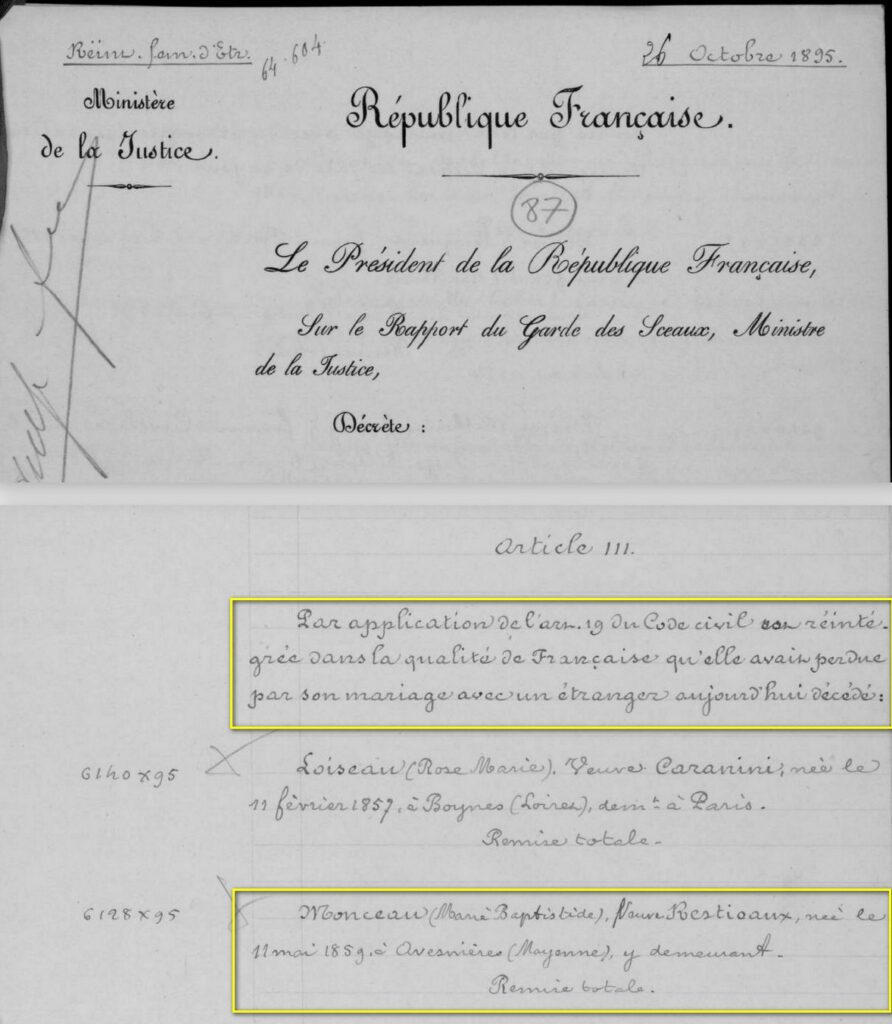 Réim. fem. d'Etr.
64.604
26 Octobre 1895.
Ministère
de la Justice.
République Française.
87
Le Président de la République Française,
Sur le Rapport du Garde des Sceaux, Ministre
de la Justice,
Décrète :
Article III.
Par application de l'art. 19 du Code civil est réinté-
grée dans la qualité de Française qu'elle avait perdue
par son mariage avec un étranger aujourd'hui décédé :
6140x95
Loiseau (Rose Marie), Veuve Caranini, née le
11 février 1857, à Boynes (Loiret), demt. à Paris.
Remise totale.
6128x95
Monceau (Marie Baptistide), Veuve Restioaux, née le
11 mai 1859, à Avesnières (Mayenne), y demeurant.
Remise totale.